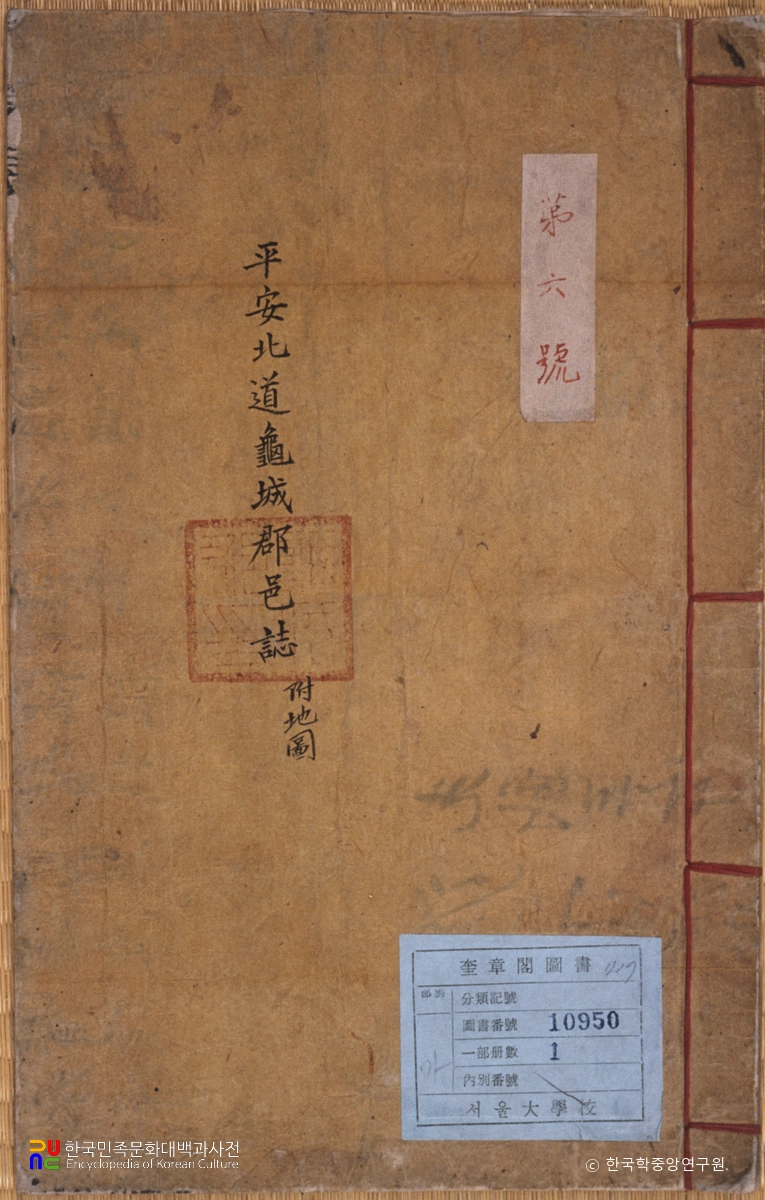 第六號
平安北道龜城郡邑誌
附地圖
奎章閣圖書
部別
分類記號
圖書番號 10950
一部册數 1
內別番號
서울大學校
한국민족문화대백과사전
Encyclopedia of Korean Culture
© 한국학중앙연구원.